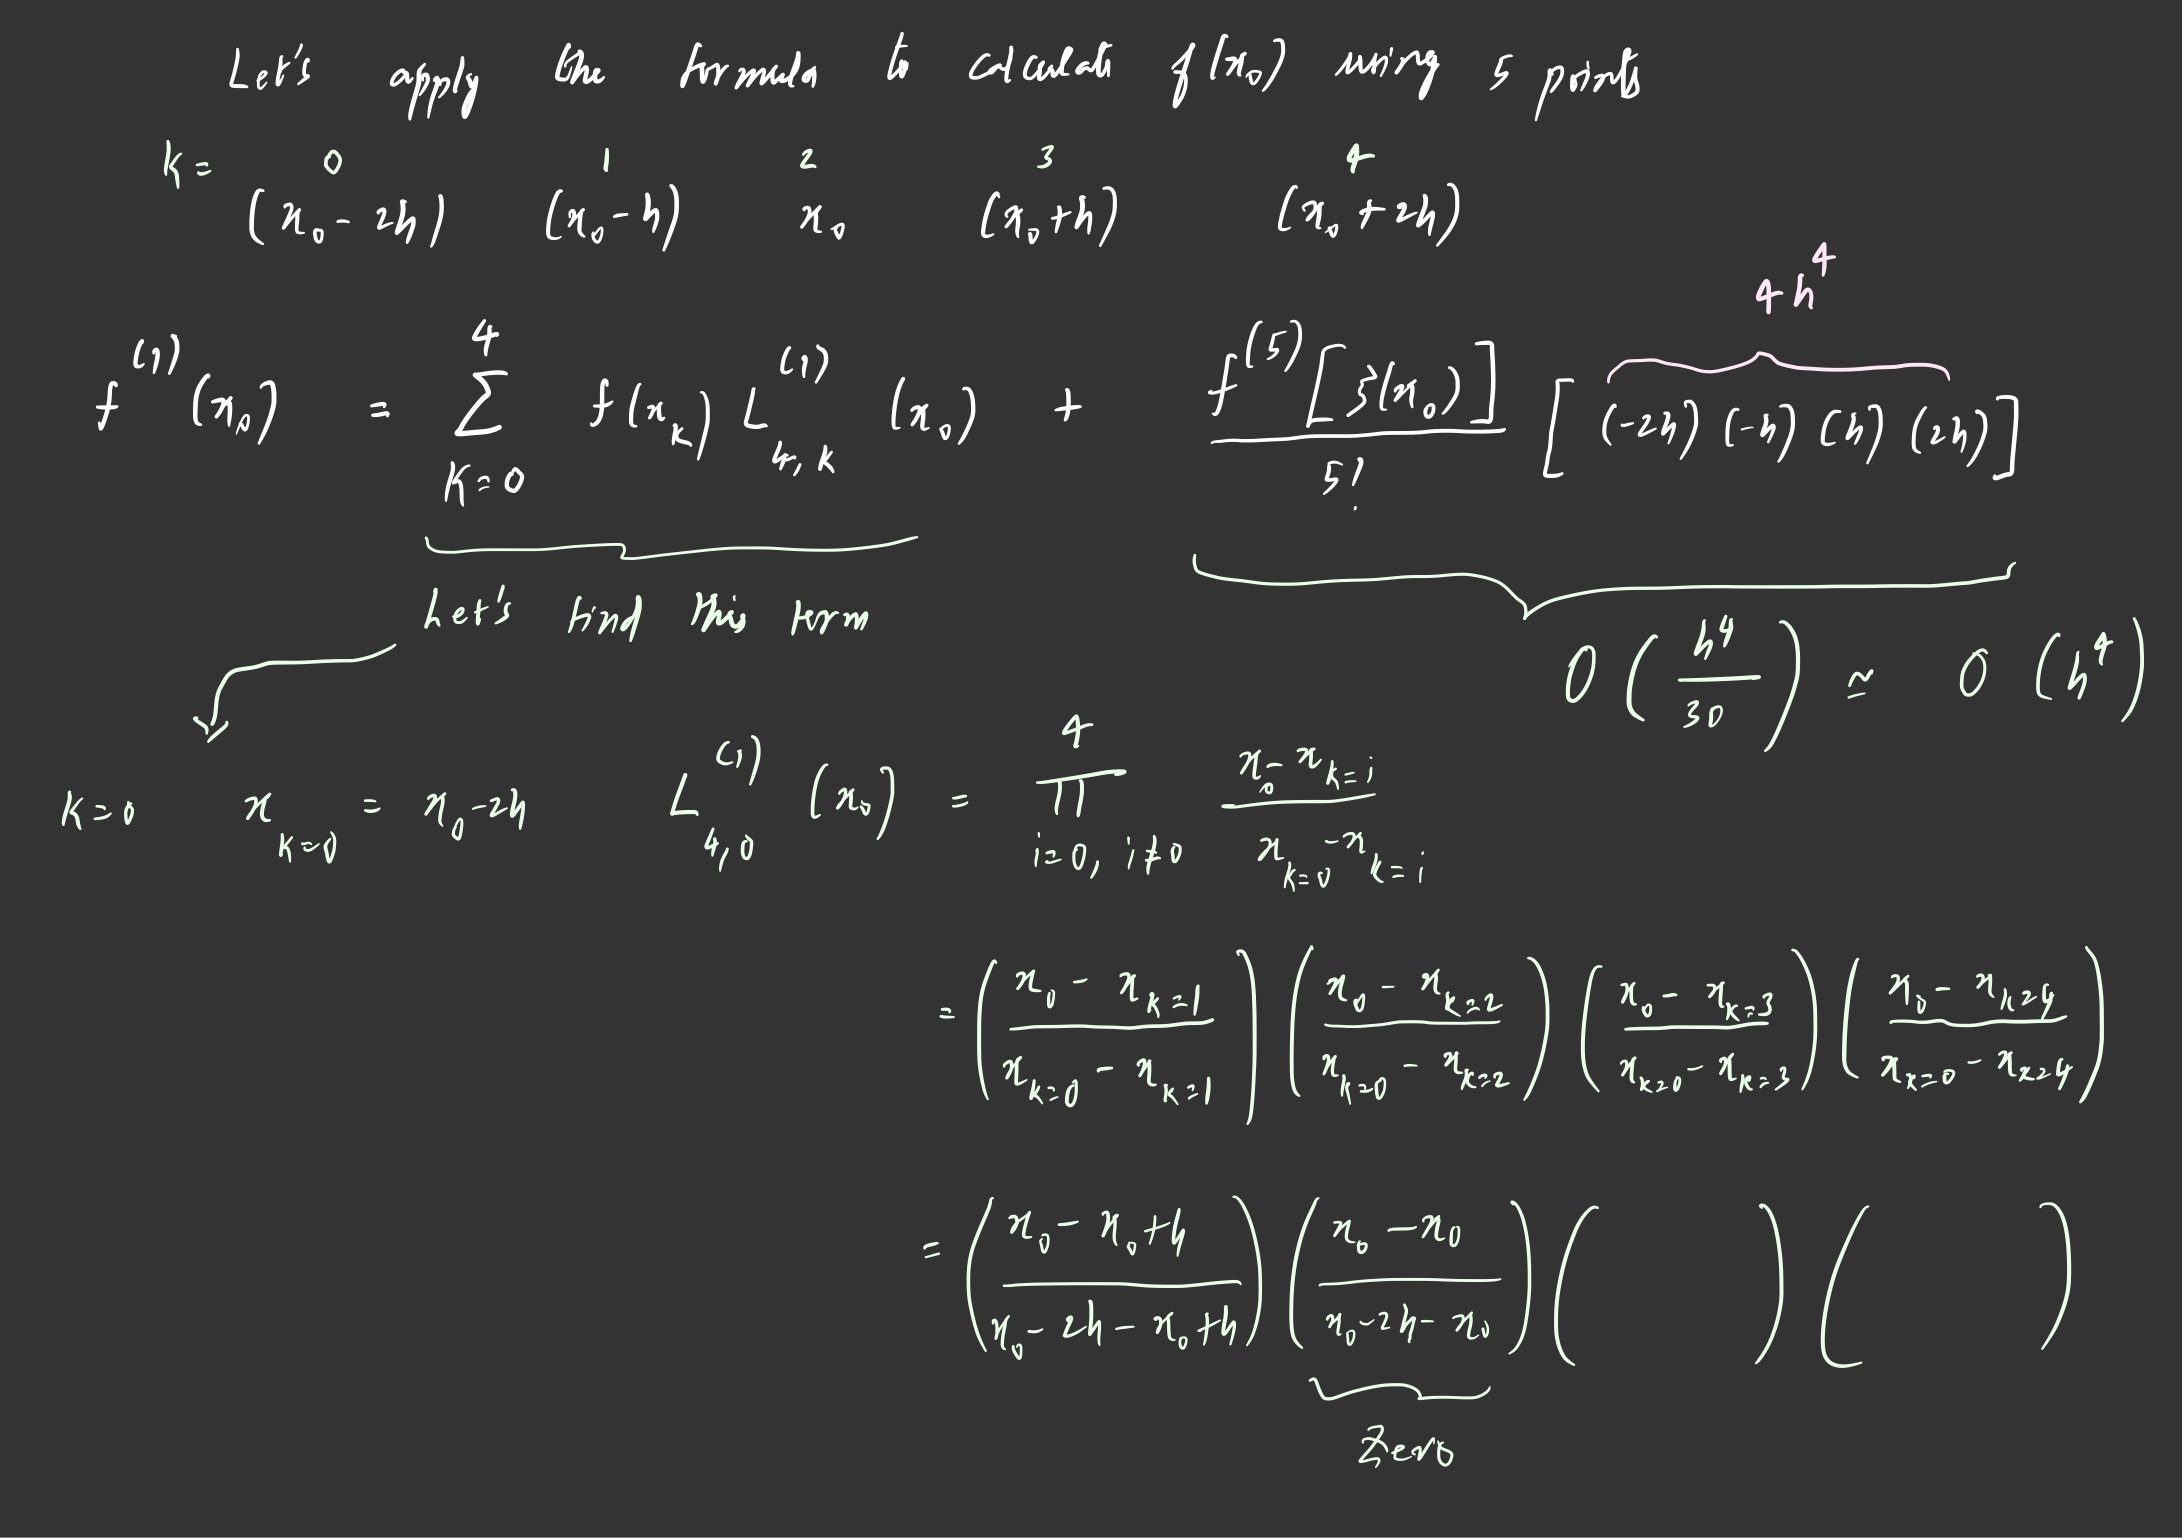 Let's apply the formula to calculate f(x₀) using 5 points
k = 0 1 2 3 4
(x₀ - 2h) (x₀ - h) x₀ (x₀ + h) (x₀ + 2h)
4h⁴
f⁽¹⁾(x₀) = Σ_{k=0}^{4} f(x_k) L⁽¹⁾_{4,k} (x₀) + f⁽⁵⁾[ξ(x₀)] / 5! [(-2h) (-h) (h) (2h)]
Let's find this term
O(h⁴/30) ≃ O(h⁴)
k=0 x_{k=0} = x₀ - 2h L⁽¹⁾_{4,0} (x₀) = ∏_{i=0, i≠0}^{4} (x₀ - x_{k=i}) / (x_{k=0} - x_{k=i})
= ((x₀ - x_{k=1}) / (x_{k=0} - x_{k=1})) ((x₀ - x_{k=2}) / (x_{k=0} - x_{k=2})) ((x₀ - x_{k=3}) / (x_{k=0} - x_{k=3})) ((x₀ - x_{k=4}) / (x_{k=0} - x_{k=4}))
= ((x₀ - x₀ + h) / (x₀ - 2h - x₀ + h)) ((x₀ - x₀) / (x₀ - 2h - x₀)) ( ) ( )
Zero